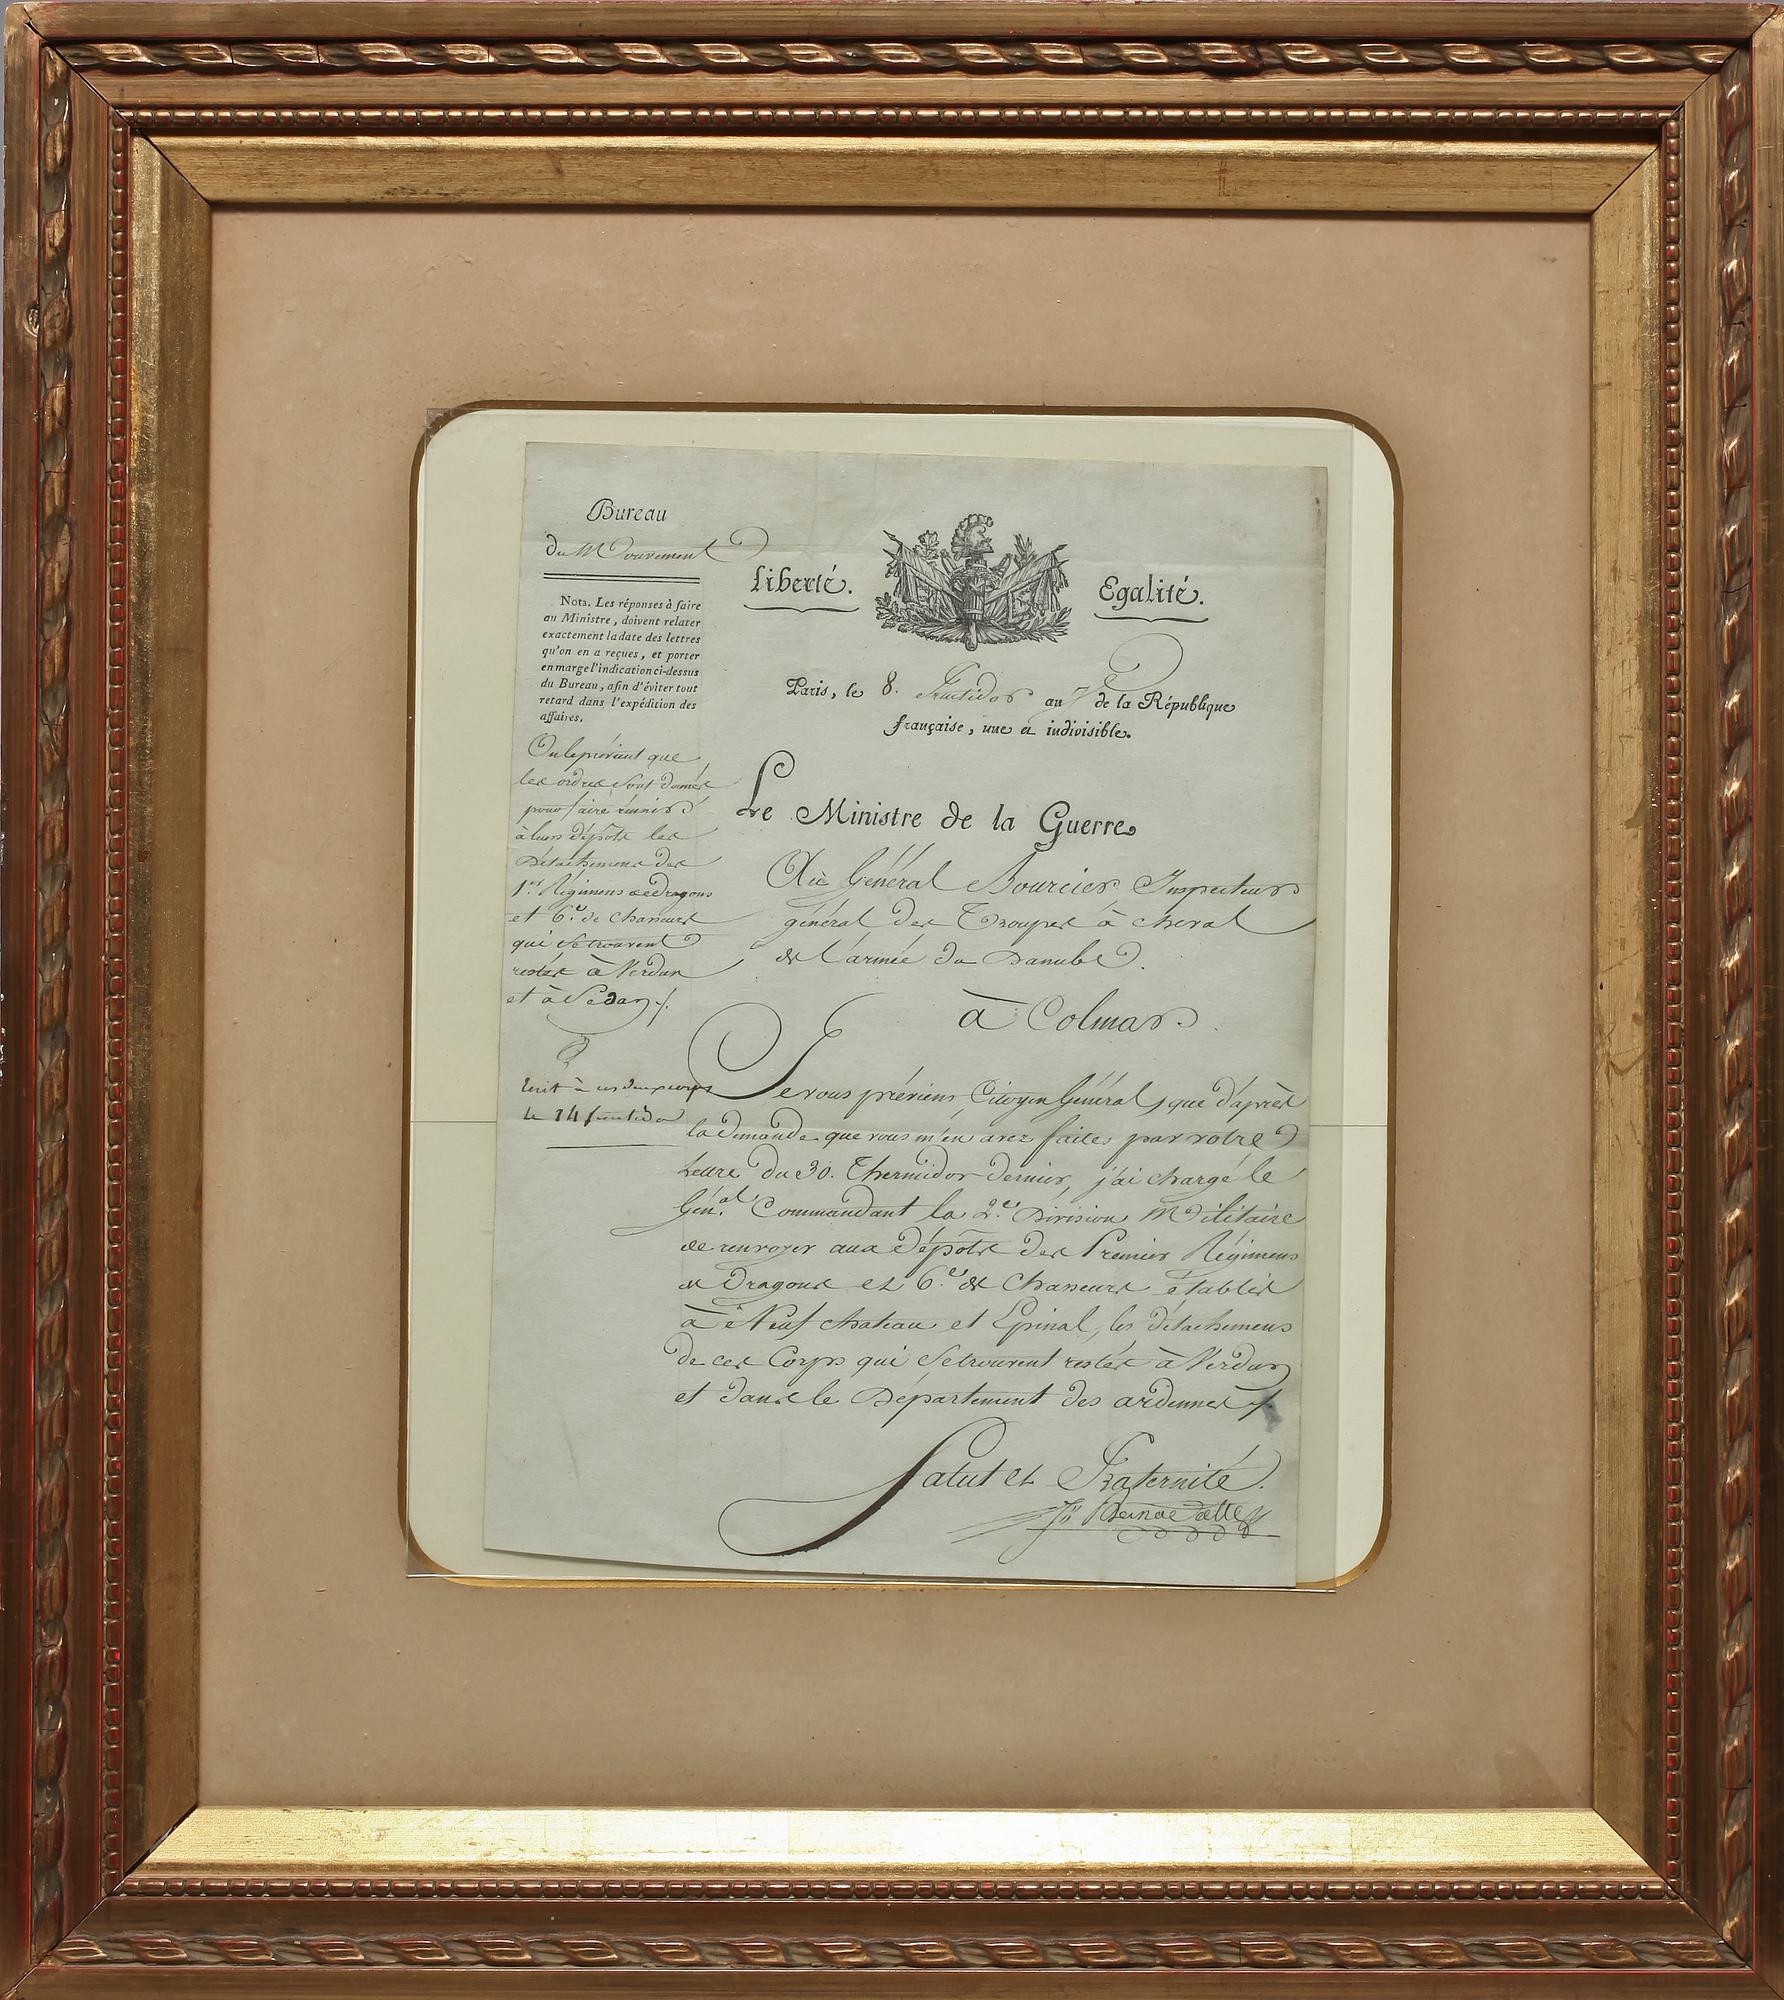 Bureau
du Mouvement
Nota. Les réponses à faire
au Ministre, doivent relater
exactement la date des lettres
qu'on en a reçues, et porter
en marge l'indication ci-dessus
du Bureau, afin d'éviter tout
retard dans l'expédition des
affaires.
On le prévient que
les ordres sont donnés
pour faire réunir
à leurs dépôts les
Détachemens des
1er. Régimens de Dragons
et 6.e de Chasseurs
qui se trouvent
restés à Verdun
et à Sedan ./.
Ecrit à ces deux corps
le 14 fructidor
Liberté. Egalité.
Paris, le 8. Fructidor an 7e de la République
française, une et indivisible.
Le Ministre de la Guerre
Au Général Bourcier Inspecteur
général des Troupes à cheval
de l'armée du Danube.
à Colmar.
Je vous préviens, Citoyen Général, que d'après
la demande que vous m'en avez faites par votre
Lettre du 30. Thermidor dernier, j'ai chargé le
Gén.al Commandant la 2.e Division Militaire
de renvoyer aux dépôts des Premier Régimens
de Dragons et 6.e de Chasseurs établis
à Neufchateau et Epinal, les détachemens
de ces Corps qui se trouvent restés à Verdun
et dans le Département des ardennes ./.
Salut et Fraternité.
Bernadotte